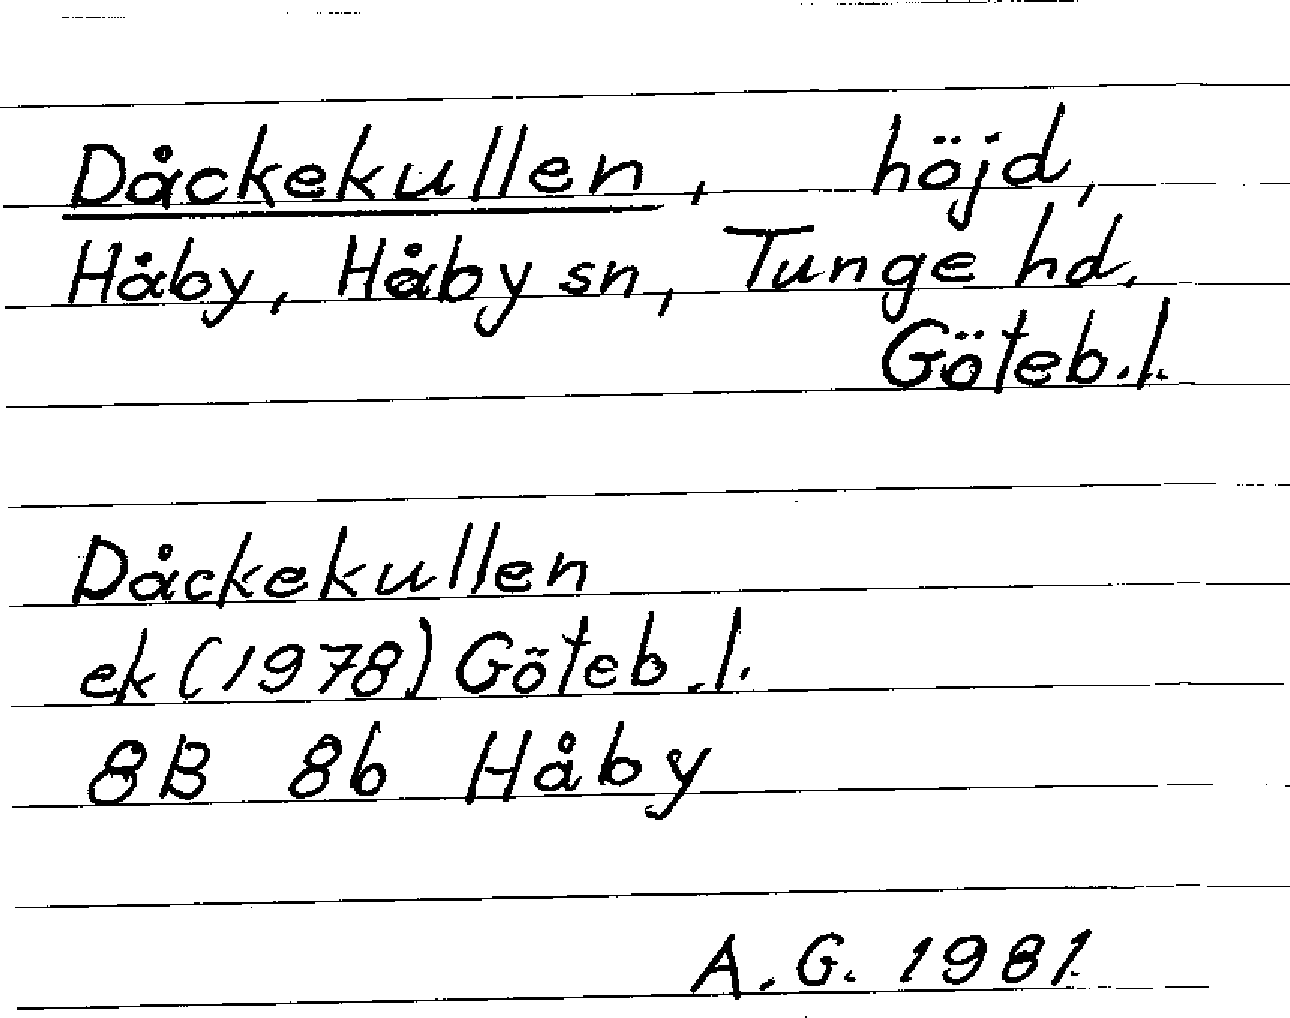 Dåckekullen, höjd,
Håby, Håby sn, Tunge hd,
Göteb.l.
Dåckekullen
ek (1978) Göteb.l.
8B 8b Håby
A.G. 1981.